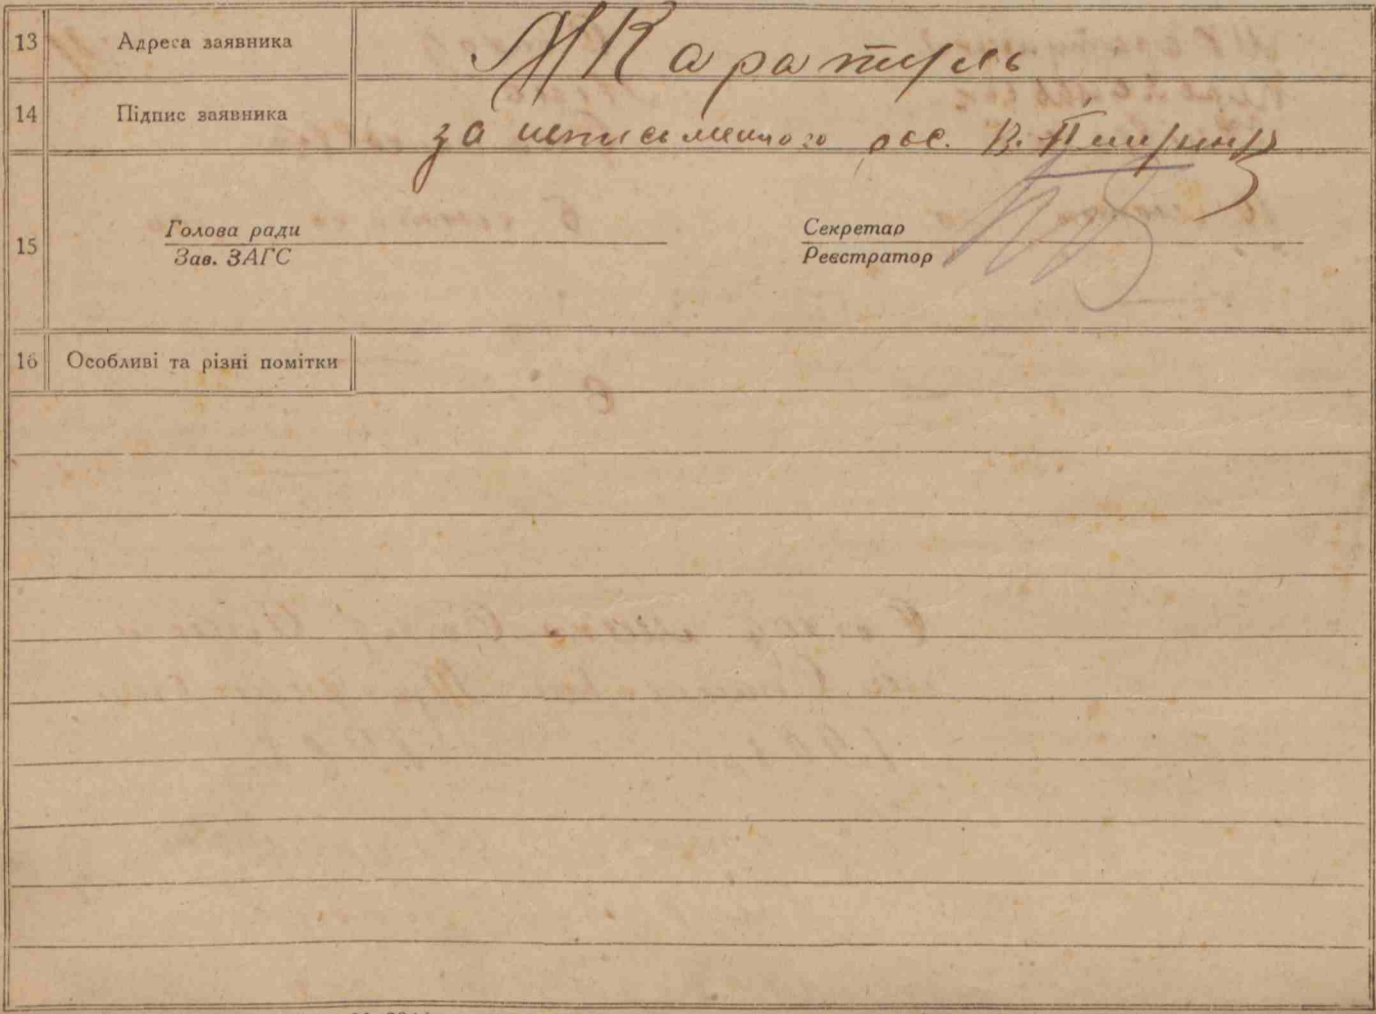 13 Адреса заявника М Каратуль
14 Підпис заявника за неписьменного рос. В.
15
Голова ради Секретар
Зав. ЗАГС Реєстратор
16 Особливі та різні помітки